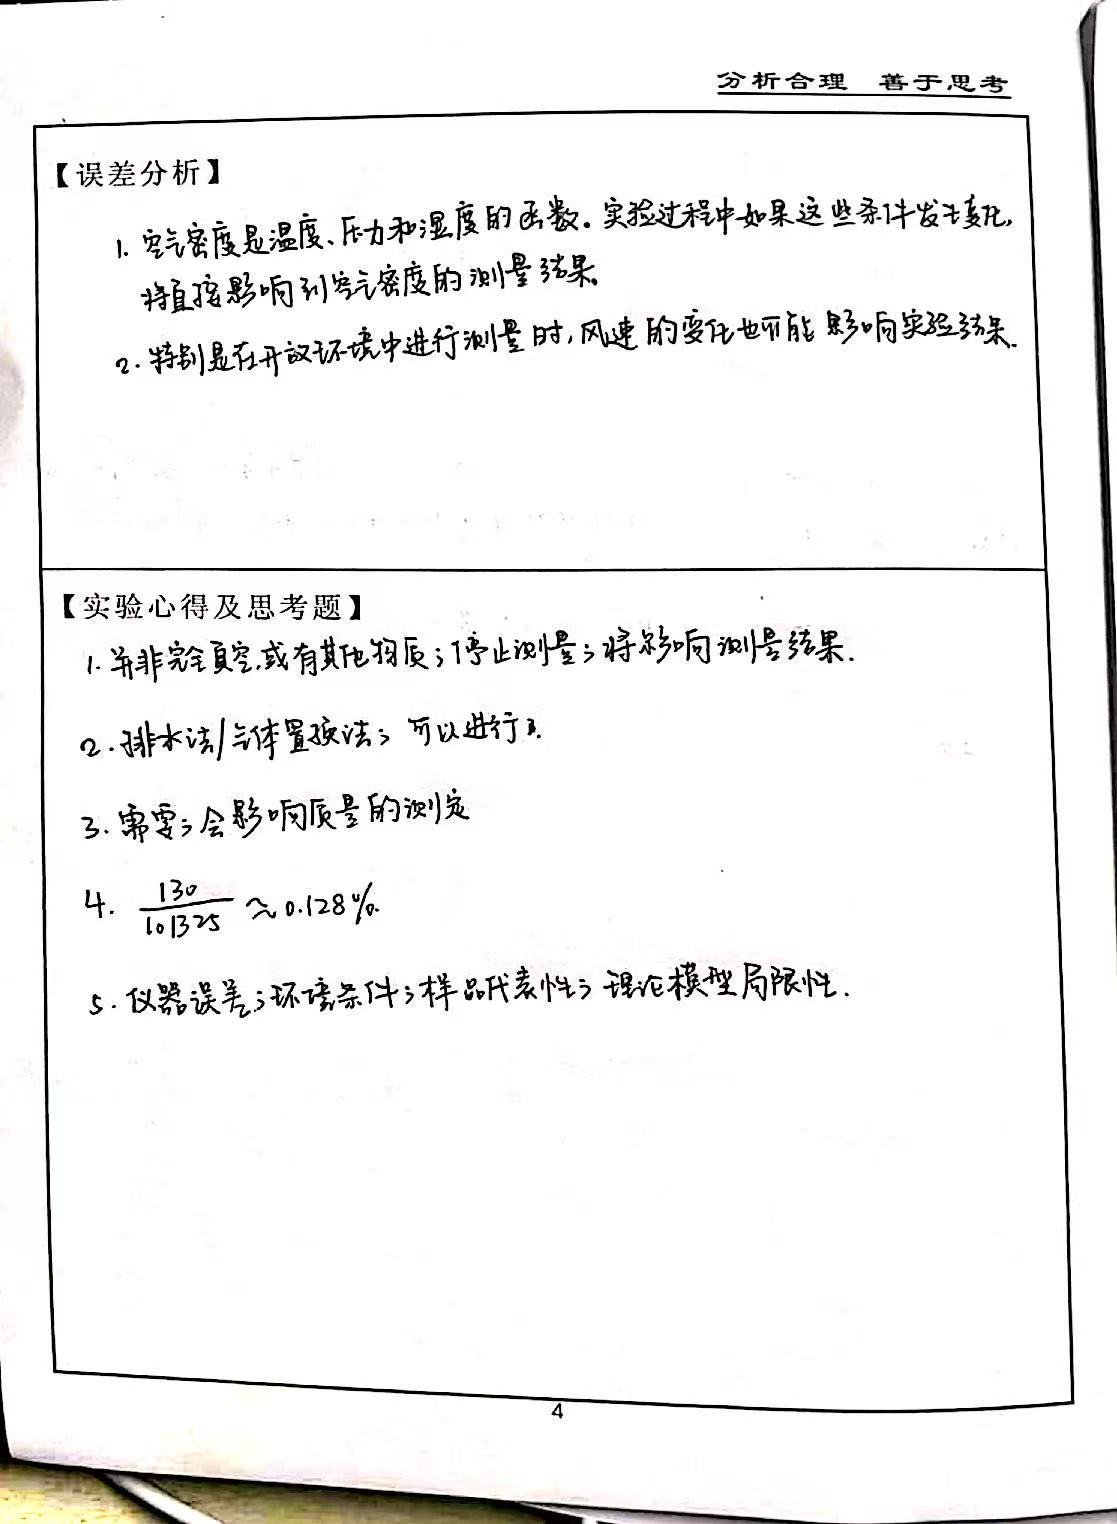 分析合理 善于思考
【误差分析】
1. 空气密度是温度、压力和湿度的函数。实验过程中如果这些条件发生变化,
将直接影响到空气密度的测量结果。
2. 特别是在开放环境中进行测量时,风速的变化也可能影响实验结果.
【实验心得及思考题】
1. 并非完全真空,或有其他物质;停止测量;将影响测量结果.
2. 排水法/气体置换法; 可以进行
3. 需要;会影响质量的测定
4. 130/101325 ≈0.128%.
5. 仪器误差;环境条件;样品代表性;理论模型局限性.
4